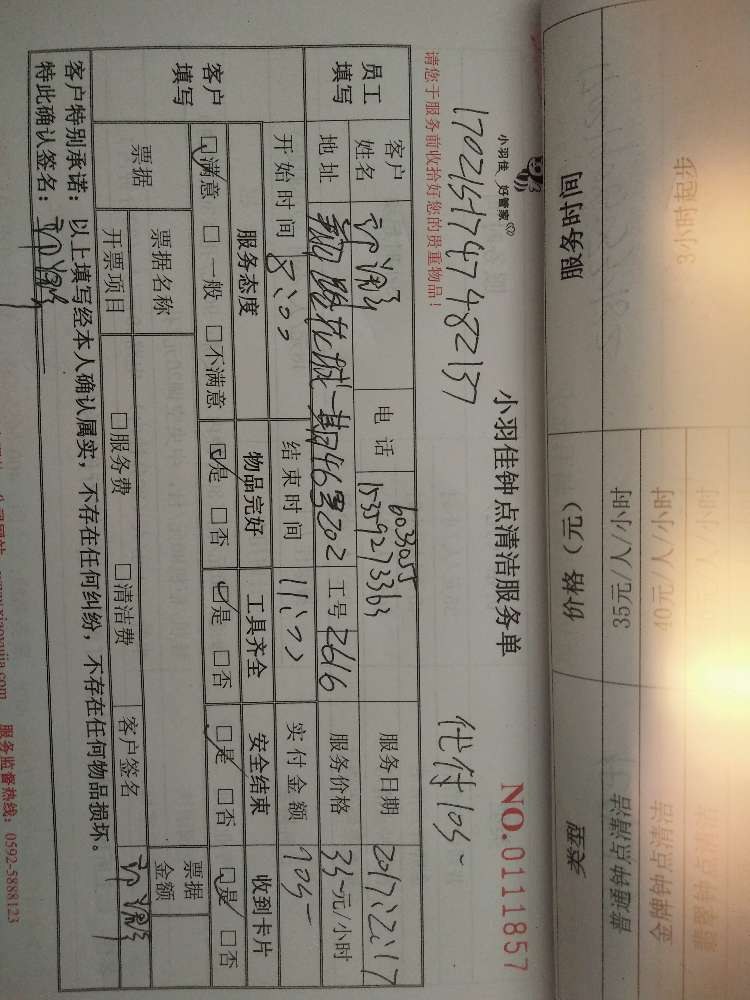 服务时间 价格（元） 类型
3小时起步 35元/人/小时 普通钟点清洁
40元/人/小时 金牌钟点清洁
小羽佳 好管家
小羽佳钟点清洁服务单 NO.0111857
1702151747482137 代付105-
请您于服务前收拾好您的贵重物品！
员工填写
客户姓名 电话 6033055 15359273363 服务日期 2017.12.17
地址 46号202 工号 2616 服务价格 35-元/小时
开始时间 8:00 结束时间 11:00 实付金额 105-
客户填写
服务态度 物品完好 工具齐全 安全结束 收到卡片
☑满意 □一般 □不满意 ☑是 □否 ☑是 □否 ☑是 □否 ☑是 □否
票据 票据名称 票据金额
开票项目 □服务费 □清洁费 客户签名
客户特别承诺：以上填写经本人确认属实，不存在任何纠纷，不存在任何物品损坏。
特此确认签名：
www.xiaoyujia.com 服务监督热线：0592-5888123